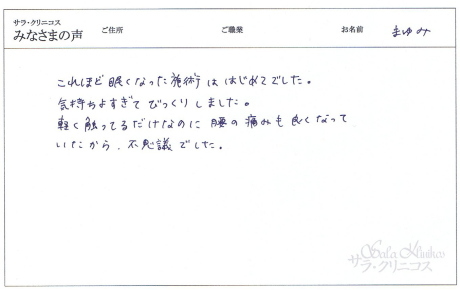 サラ・クリニコス
みなさまの声 ご住所 ご職業 お名前 まゆみ
これほど眠くなった施術ははじめてでした。
気持ちよすぎてびっくりしました。
軽く触ってるだけなのに腰の痛みも良くなって
いたから、不思議でした。
Sala Klinikos
サラ・クリニコス